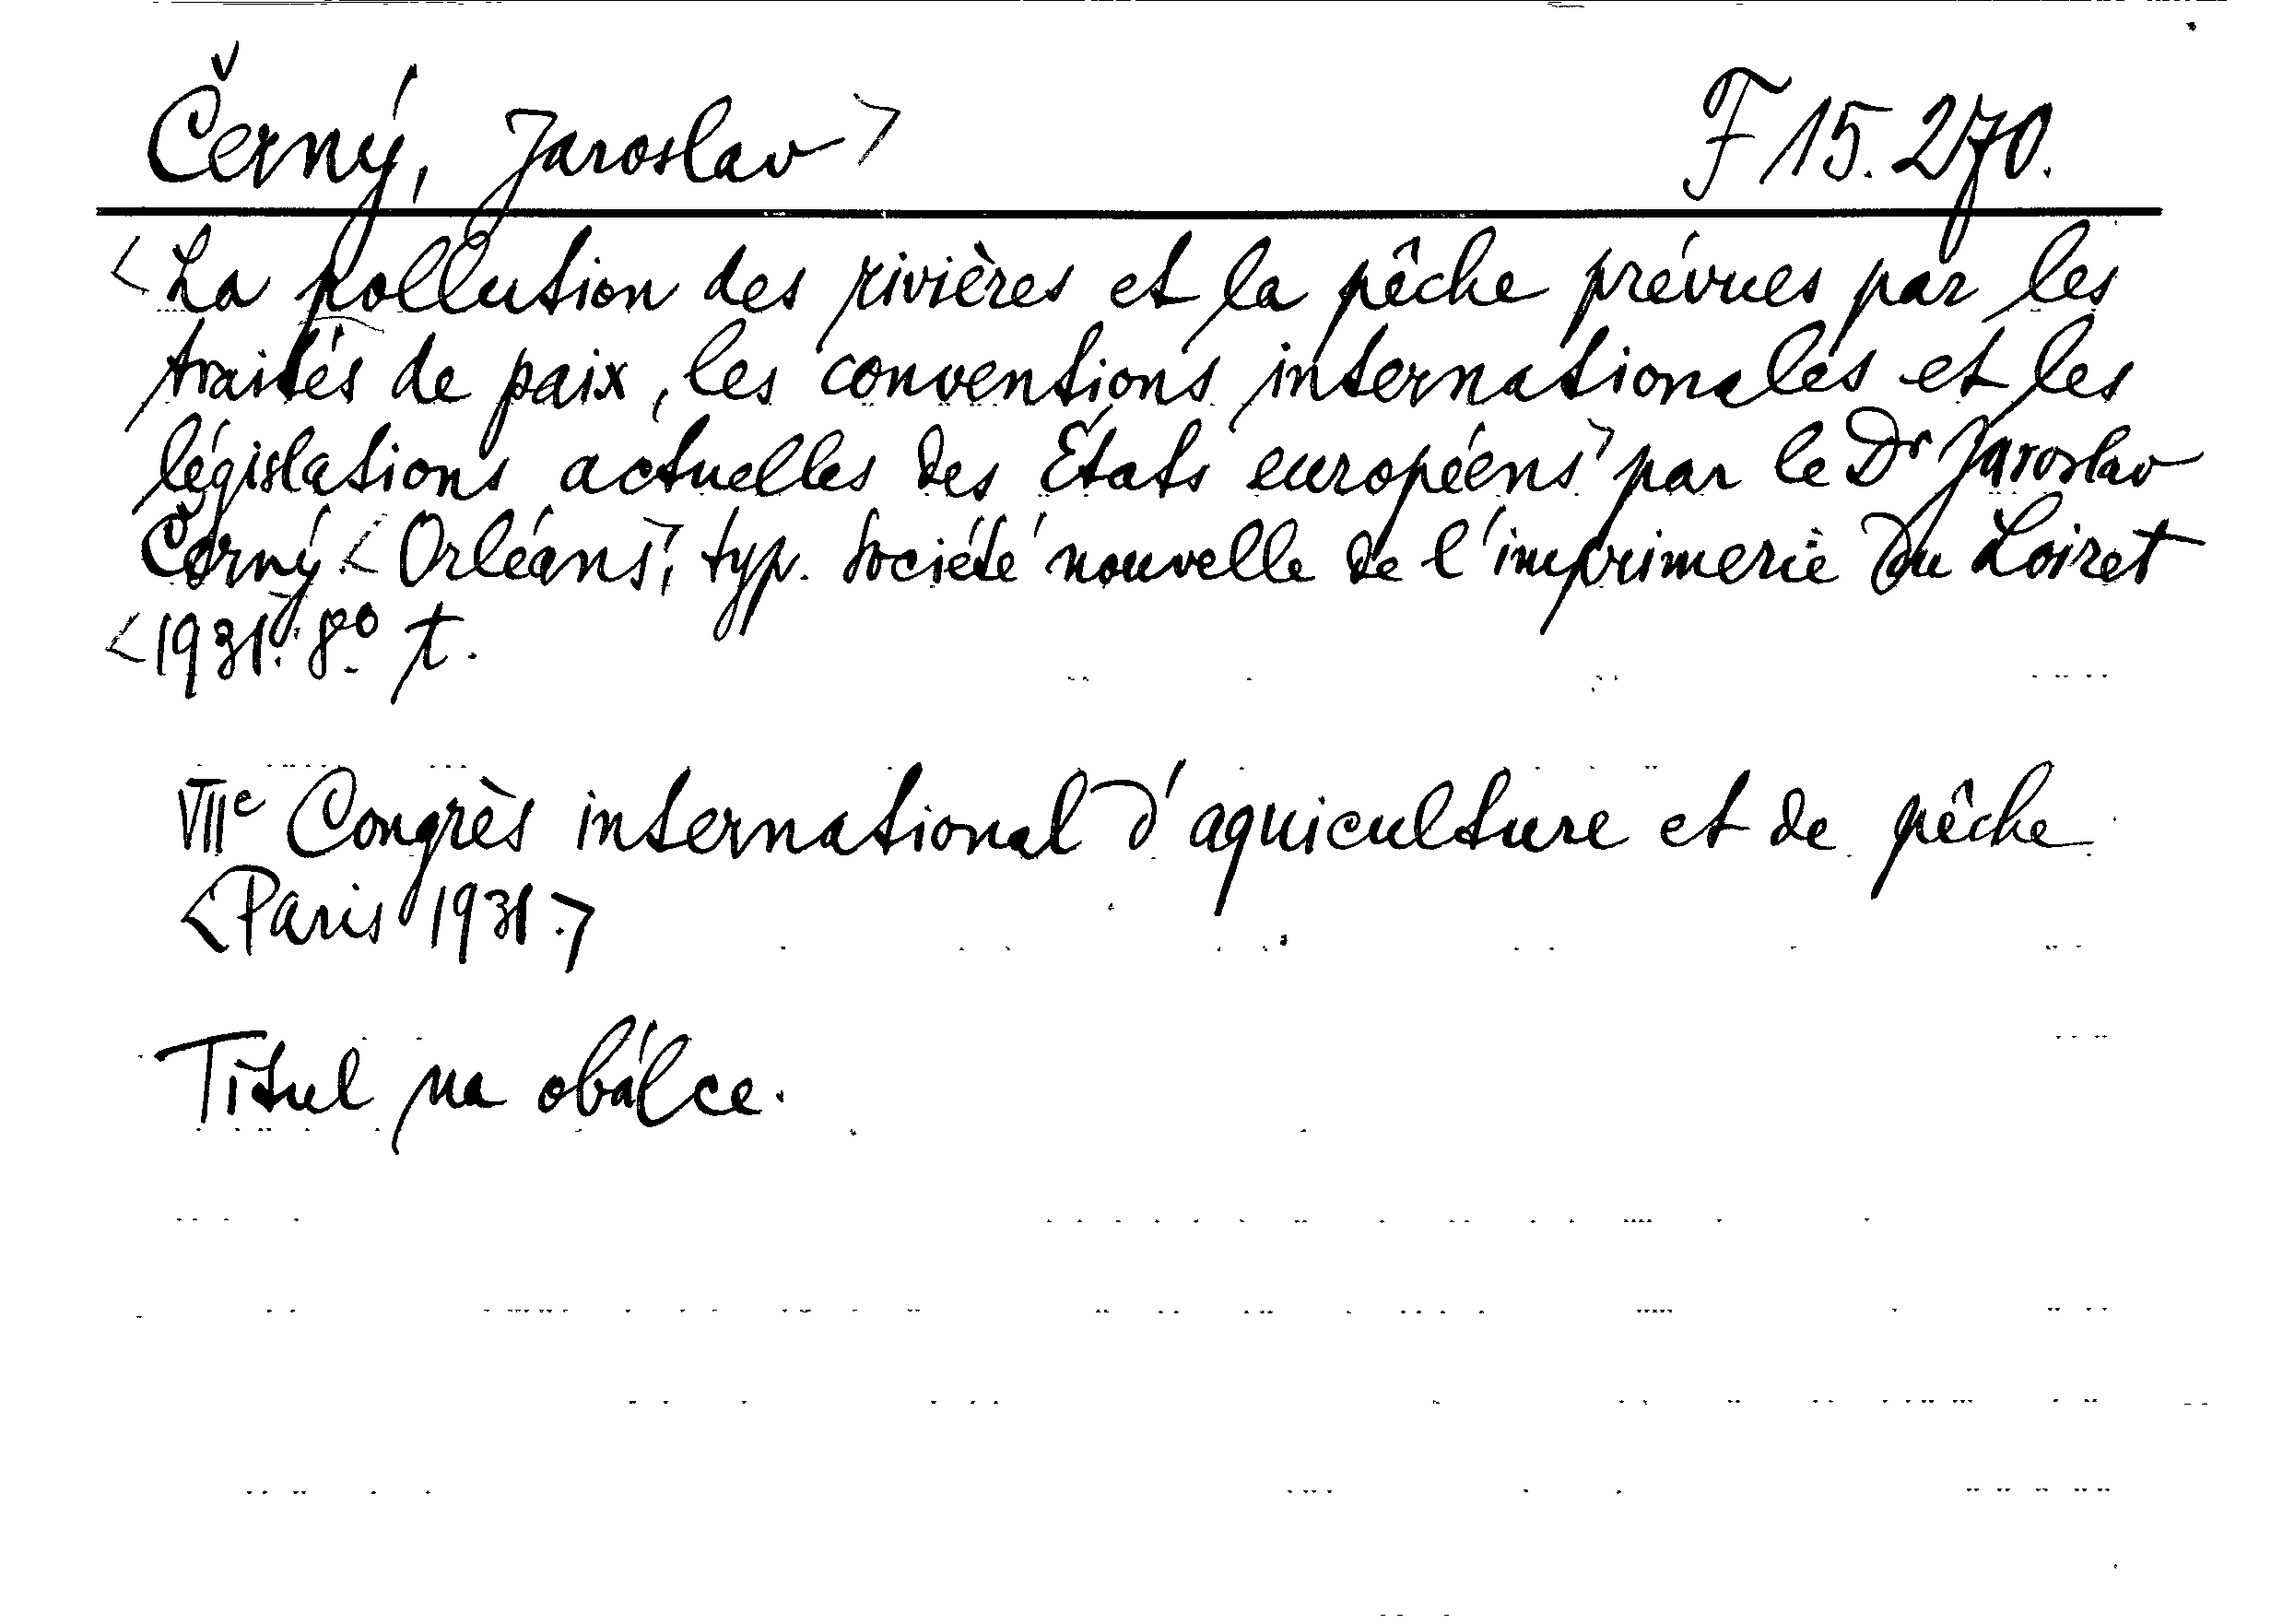 Černý, Jaroslav> F 15.270.
<La pollution des rivières et la pêche prévues par les
traités de paix, les conventions internationales et les
législations actuelles des États européens> par le Dr Jaroslav
Černý. <Orléans>, typ. Société nouvelle de l'imprimerie du Loiret
<1931>. 8° t.
VIIe Congrès international d'aquiculture et de pêche
<Paris 1931.>
Titul na obálce.